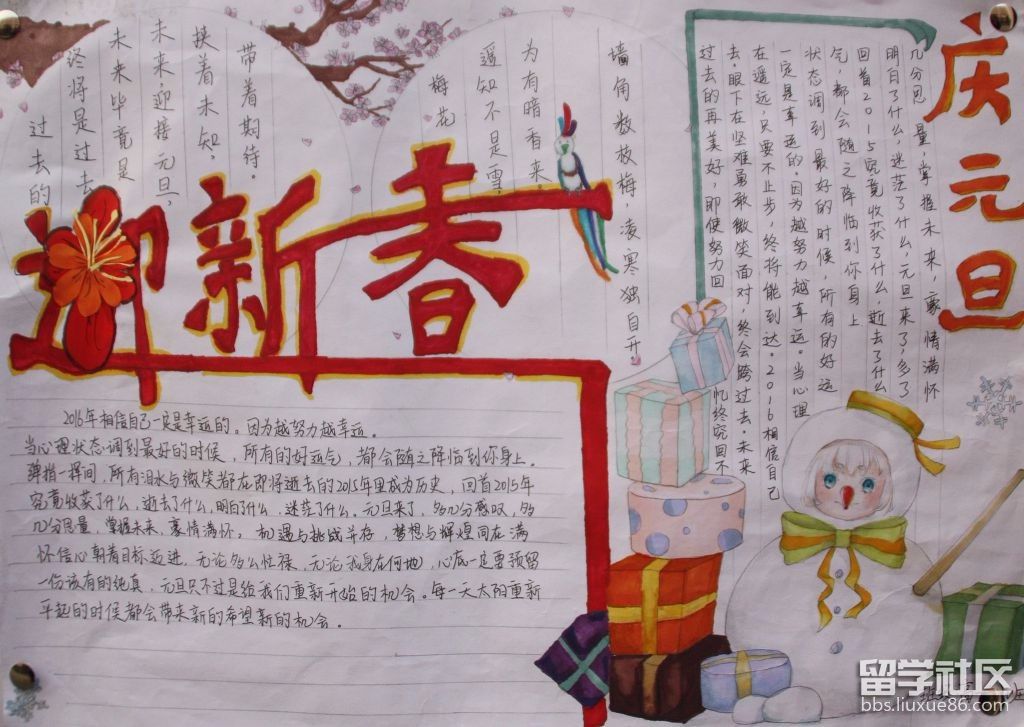 庆元旦
几分思量,掌握未来,豪情满怀
明白了什么,迷茫了什么,元旦来了,多了
回首2015究竟收获了什么,逝去了什么
气,都会随之降临到你身上
状态调到最好的时候,所有的好运
一定是幸运的。因为越努力越幸运。当心理
在遥远,只要不止步,终将能到达。2016相信自己
去。眼下在坚难勇敢微笑面对,终会跨过去。未来
过去的再美好,即使努力回忆终究回不
墙角数枝梅,凌寒独自开。
为有暗香来。
遥知不是雪,
梅花
带着期待。
挟着未知,
未来,迎接元旦,
未来毕竟是
终将是过去
过去的
迎新春
2016年相信自己一定是幸运的。因为越努力越幸运。
当心理状态调到最好的时候,所有的好运气,都会随之降临到你身上。
弹指一挥间,所有泪水与微笑都在即将逝去的2015年里成为历史,回首2015年
究竟收获了什么,逝去了什么,明白了什么,迷茫了什么。元旦来了,多几分感叹,多
几分思量,掌握未来,豪情满怀。机遇与挑战并存,梦想与辉煌同在满
怀信心朝着目标迈进,无论多么忙碌,无论我身在何地,心底一定要预留
一份该有的纯真,元旦只不过是给我们重新开始的机会。每一天太阳重新
升起的时候都会带来新的希望新的机会。
班
留学社区
bbs.liuxue86.com